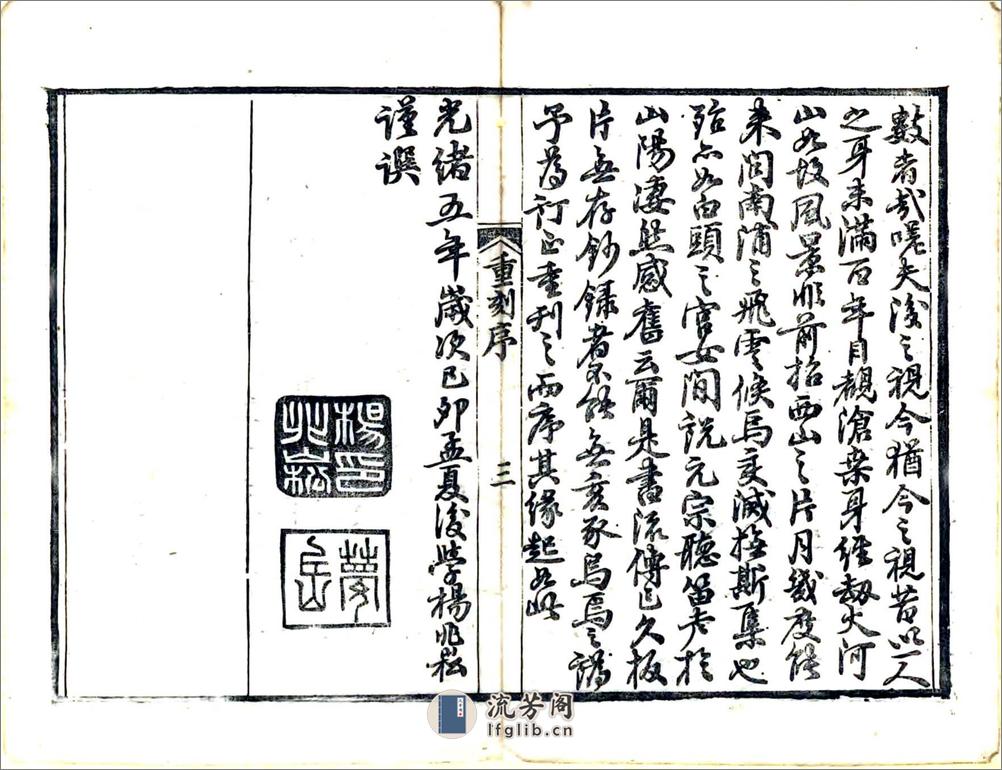 數者哉嗟夫後之視今猶今之視昔以一人
之身未滿百年目覩滄桑身經劫火河
山如故風景非前招西山之片月幾度能
來閱南浦之飛雲倏焉變滅撫斯集也
殆亦如白頭之宮女閒說元宗聽笛步於
山陽淒然感舊云爾是書流傳已久板
片無存鈔錄者不能無亥豕烏焉之譌
予為訂正重刊之而序其緣起如此
重刻序
三
光緒五年歲次己卯孟夏後學楊兆崧
謹譔
楊兆崧印
夢岳
流芳阁
lfglib.cn